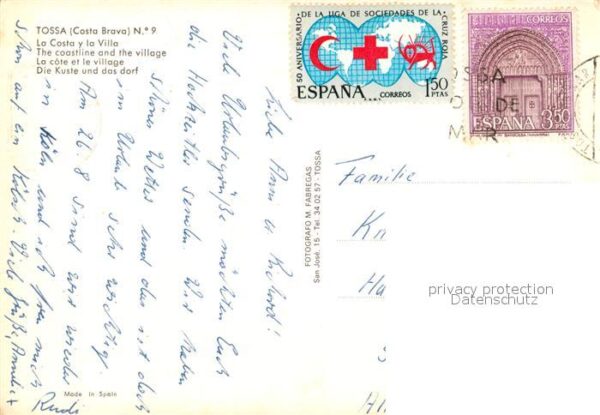 TOSSA (Costa Brava) N.º 9
La Costa y la Villa
The coastline and the village
La côte et le village
Die Kuste und das dorf
50 ANIVERSARIO DE LA LIGA DE SOCIEDADES DE LA CRUZ ROJA
ESPAÑA CORREOS 1,50 PTAS
CORREOS
ESPAÑA 3,50 PTAS
TOSSA
DE
MAR
Richard!
Viele Urlaubsgrüße möchten Euch
die Hochzeitler senden. Wir haben
schönes Wetter und das ist doch
im Urlaub sehr wichtig.
Am 26.8 sind wir wieder
in Köln und ich freu mich
schon auf ein Kölsch. Viele Grüße,
Rudi
FOTOGRAFO M. FABREGAS
San José, 15 - Tel. 34 02 57 - TOSSA
Familie
K
Ha
privacy protection
Datenschutz
Made in Spain